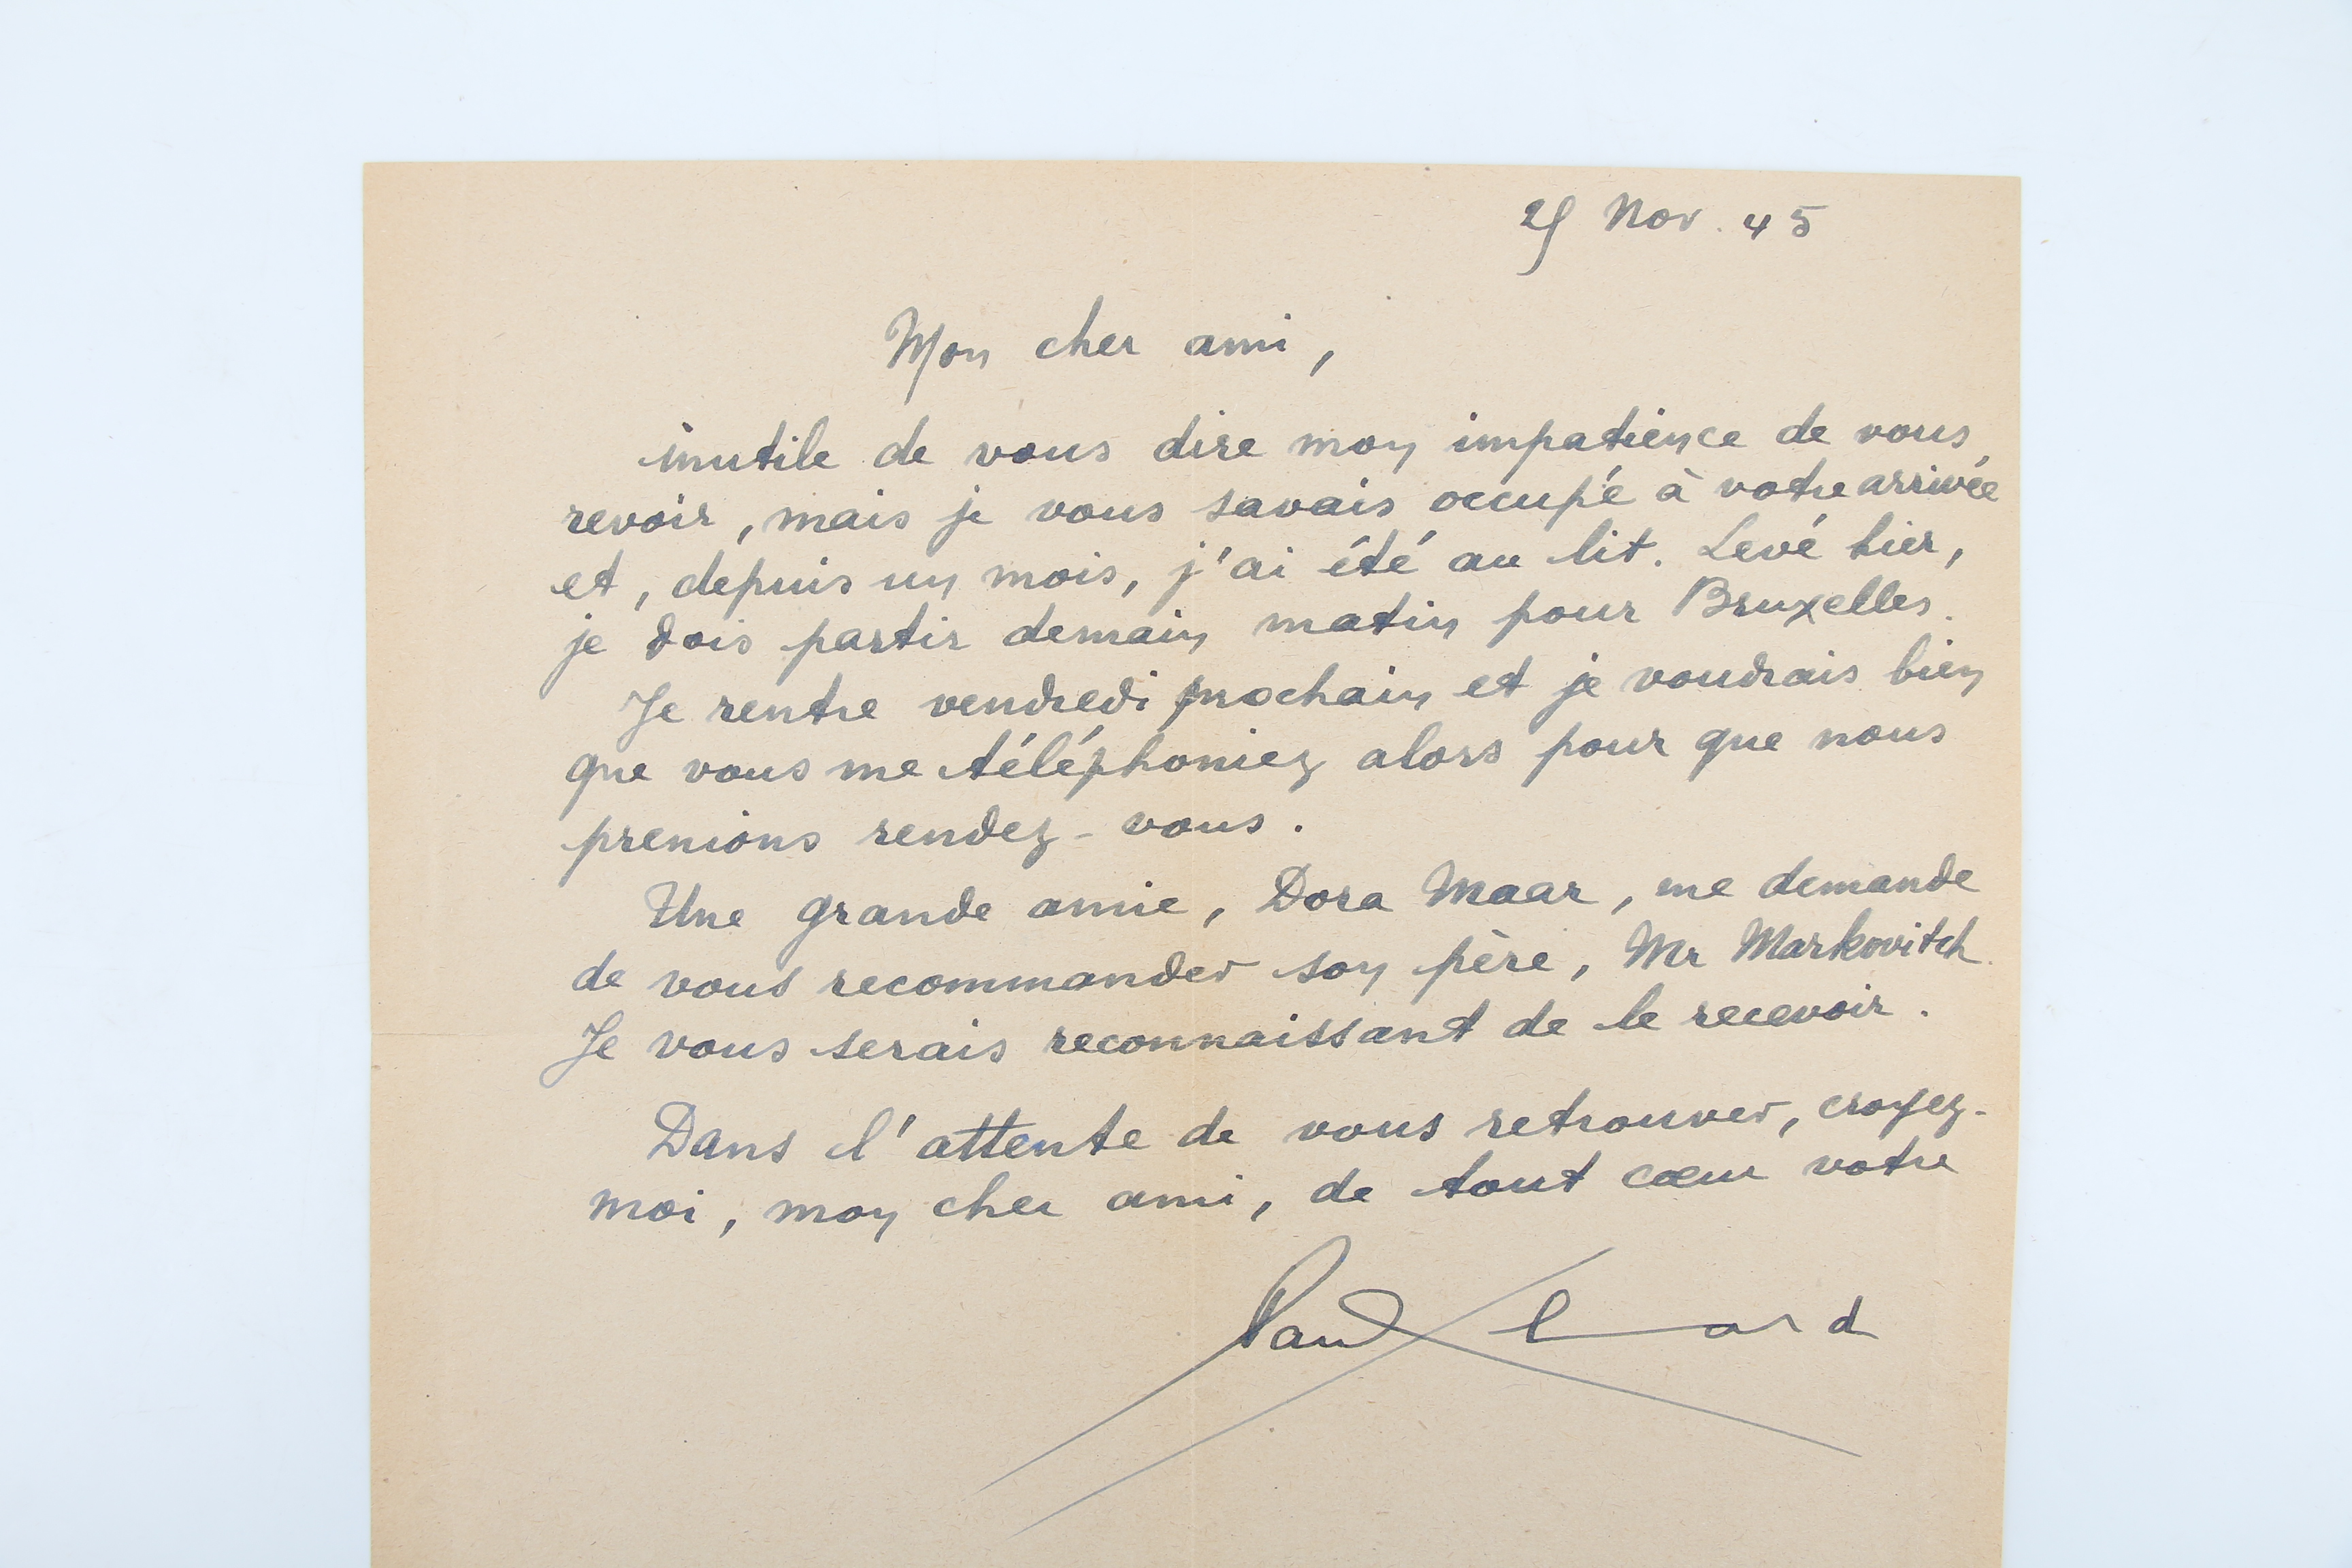 Nov. 45
Mon cher ami,
inutile de vous dire mon impatience de vous
revoir, mais je vous savais occupé à votre arrivée
et, depuis un mois, j'ai été au lit. Levé hier,
je dois partir demain matin pour Bruxelles.
Je rentre vendredi prochain et je voudrais bien
que vous me téléphoniez alors pour que nous
prenions rendez-vous.
Une grande amie, Dora Maar, me demande
de vous recommander son père, Mr Markovitch.
Je vous serais reconnaissant de le recevoir.
Dans l'attente de vous retrouver, croyez-
moi, mon cher ami, de tout cœur votre
Paul Eluard